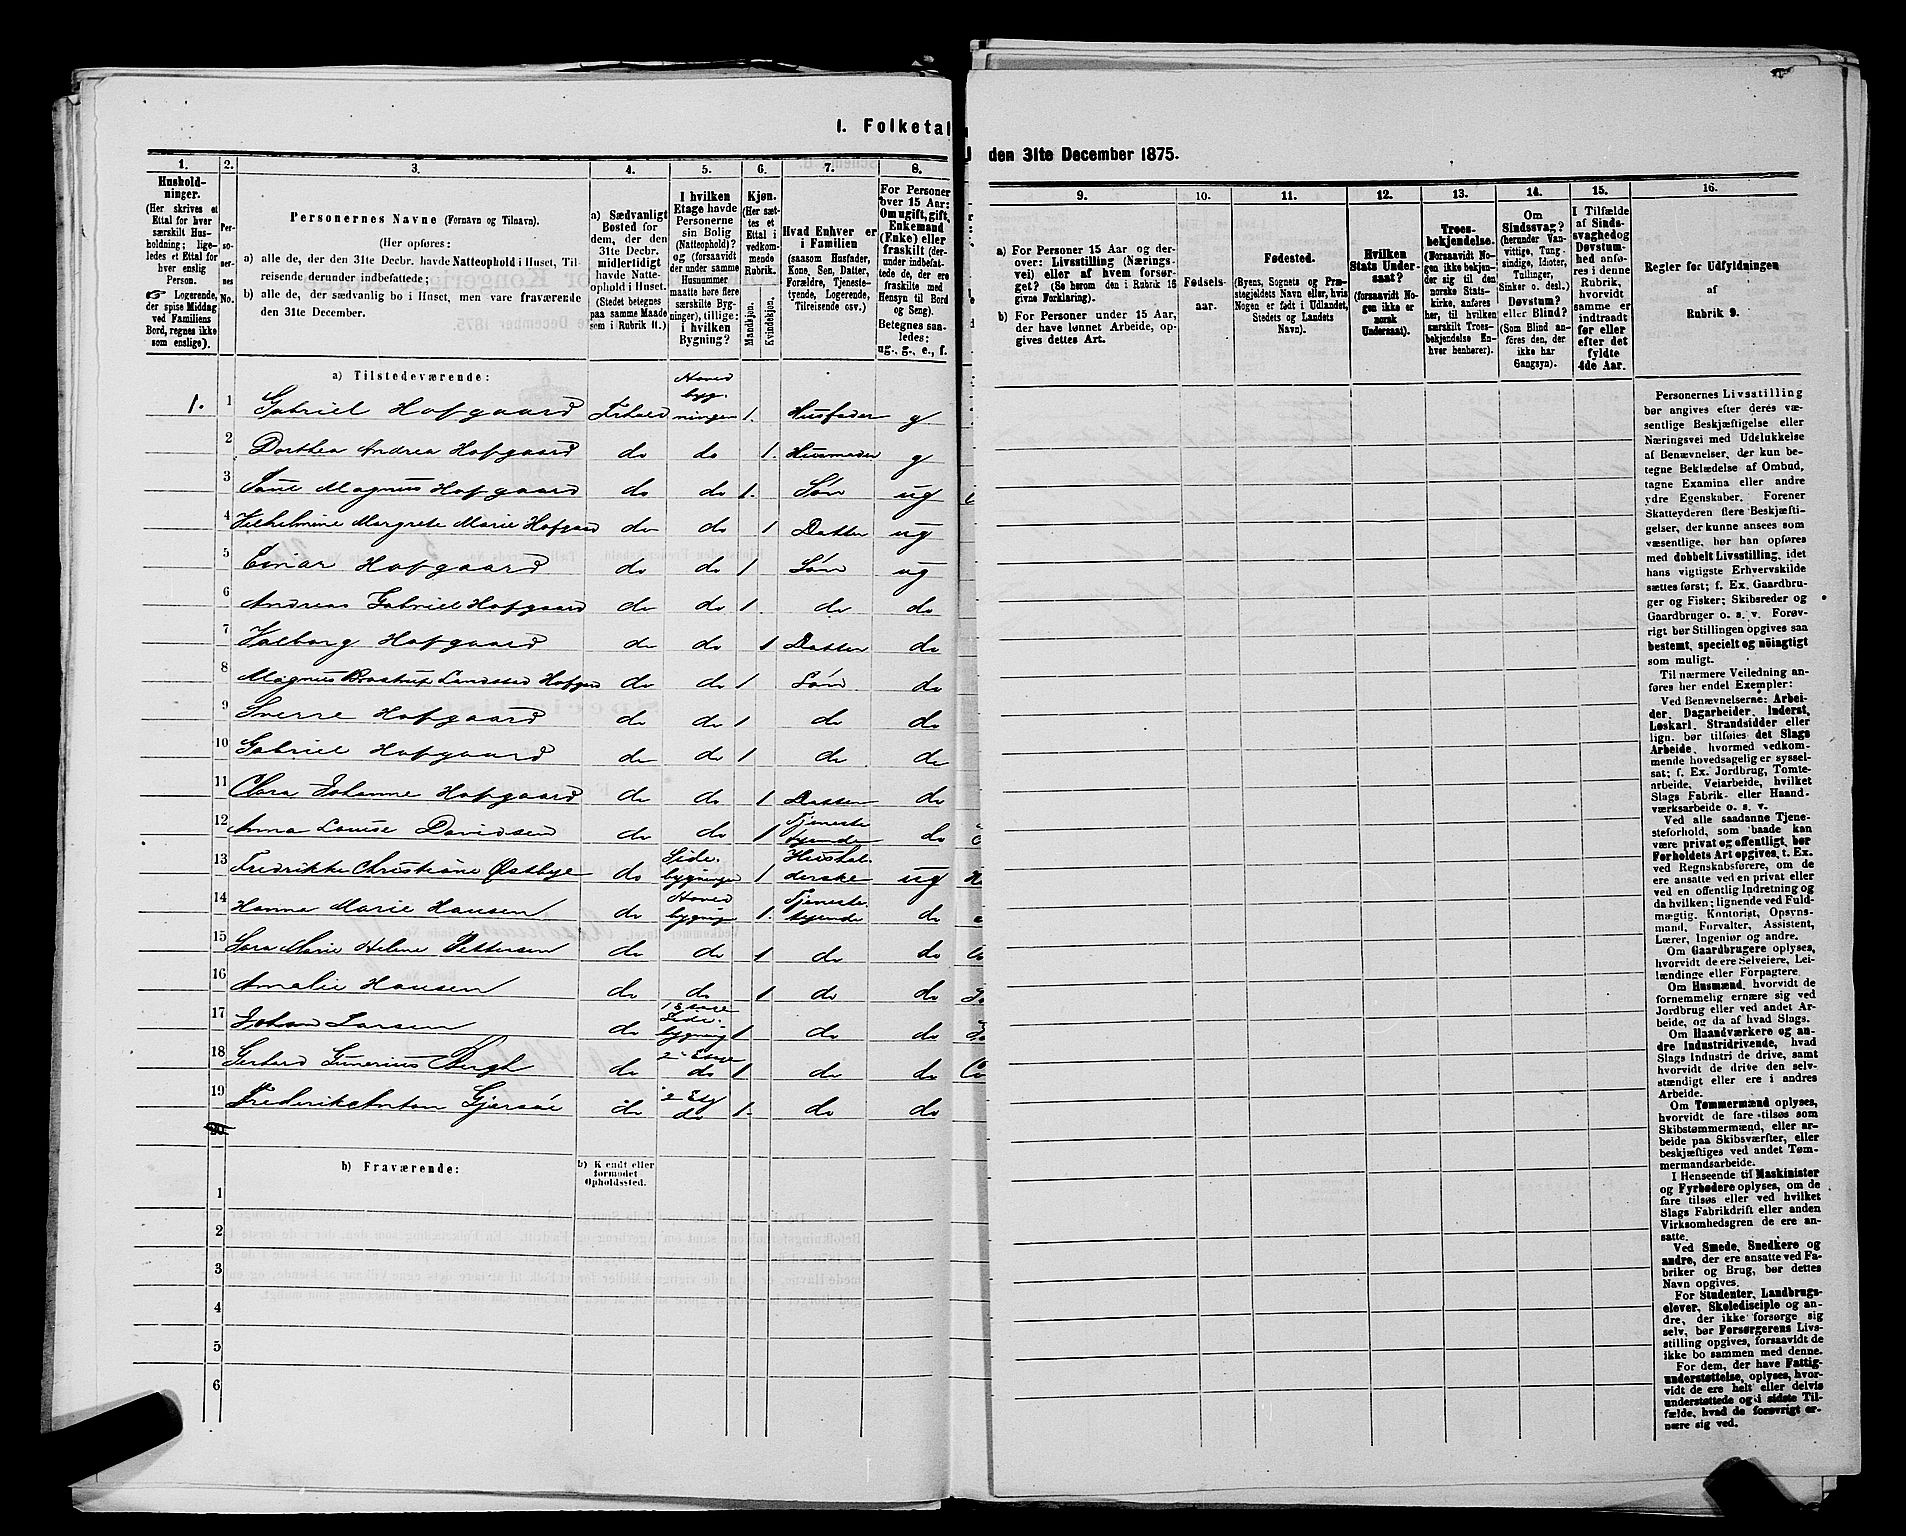 I. Folketal
den 31te December 1875.
1. 2. 3. 4. 5. 6. 7. 8.
Hushold-
ninger.
(Her skrives et
Ettal for hver
særskilt Hus-
holdning; lige-
ledes et Ettal for
hver enslig
Person.
☞ Logerende,
der spise Middag
ved Familiens
Bord, regnes ikke
som enslige).
Per-
so-
ner-
nes
No.
Personernes Navne (Fornavn og Tilnavn).
(Her opføres:
a) alle de, der den 31te Decbr. havde Natteophold i Huset, Til-
reisende derunder indbefattede;
b) alle de, der sædvanlig bo i Huset, men vare fraværende
den 31te December.
a) Sædvanligt
Bosted for
dem, der den
31te Decbr.
midlertidigt
havde Natte-
ophold i Huset.
(Stedet betegnes
paa samme Maade
som i Rubrik 11.)
I hvilken
Etage havde
Personerne
sin Bolig
(Natteophold)?
og (forsaavidt
der under samme
Husnummer
maatte høre flere
særskilte Byg-
ninger), tillige:
i hvilken
Bygning?
Kjøn.
(Her sæt-
tes et
Ettal i
vedkom-
mende
Rubrik.
Mandkjøn.
Kvindekjøn.
Hvad Enhver er
i Familien
(saasom Husfader,
Kone, Søn, Datter,
Forældre, Tjeneste-
tyende, Logerende,
Tilreisende osv.)
For Personer
over 15 Aar:
Om ugift, gift,
Enkemand
(Enke) eller
fraskilt (der-
under indbefat-
tede de, der ere
fraskilte med
Hensyn til Bord
og Seng).
Betegnes saa-
ledes:
ug., g., e., f.
a) Tilstedeværende:
1. 1 Gabriel Hofgaard Hoved byg- ningen 1. Husfader g
2 Dorthea Andrea Hofgaard do do 1. Husmoder g
3 Magnus Hofgaard do do 1. Søn ug
4 Vilhelmine Margrete Marie Hofgaard do do 1 Datter ug
5 Einar Hofgaard do do 1 Søn ug
6 Andreas Gabriel Hofgaard do do 1. do do
7 Valborg Hofgaard do do 1 Datter do
8 Magnus Brostrup Landstad Hofgard do do 1 Søn do
9 Sverre Hofgaard do do 1 do do
10 Gabriel Hofgaard do do 1 do do
11 Clara Johanne Hofgaard do do 1 Datter do
12 Anna Louise Davidsen do do 1 Tjeneste tyende do
13 Fredrikke Christiane Østbye do Side- bygningen 1 Hushol- derske ug
14 Hanna Marie Hansen do Hoved bygning 1. Tjeneste- tyende do
15 Sara Marie Helene Pettersen do do 1 do do
16 Amalie Hansen do do 1 do do
17 Johan Larsen do 1 Etage Side- bygning 1 do do
18 Gerhard Gunerius Bergh do 2 Etage do 1 do do
19 Frederik Anton Gjersøe do 2 Etg do 1. do do
20
b) Fraværende:
b) Kjendt eller
formodet
Opholdssted.
1
2
3
4
5
6
9. 10. 11. 12. 13. 14. 15. 16.
a) For Personer 15 Aar og der-
over: Livsstilling (Nærings-
vei) eller af hvem forsør-
get? (Se herom den i Rubrik 16
givne Forklaring).
b) For Personer under 15 Aar,
der have lønnet Arbeide, op-
gives dettes Art.
Fødsels-
aar.
Fødested.
(Byens, Sognets og Præ-
stegjeldets Navn eller, hvis
Nogen er født i Udlandet,
Stedets og Landets
Navn).
Hvilken
Stats Under-
saat?
(forsaavidt No-
gen ikke er
norsk
Undersaat).
Troes-
bekjendelse.
(Forsaavidt No-
gen ikke bekjen-
der sig til den
norske Stats-
kirke, anføres
her, til hvilken
særskilt Troes-
bekjendelse En-
hver henhører).
Om
Sindssvag?
(herunder Van-
vittige, Tung-
sindige, Idioter,
Tullinger,
Sinker o. desl.)
Døvstum?
eller Blind?
(Som Blind an-
føres den, der
ikke har
Gangsyn).
I Tilfælde
af Sinds-
svaghed og
Døvstum-
hed anfø-
res i denne
Rubrik,
hvorvidt
samme er
indtraadt
før eller
efter det
fyldte
4de Aar.
Regler for Udfyldningen
af
Rubrik 9.
Personernes Livsstilling
bør angives efter deres væ-
sentlige Beskjæftigelse eller
Næringsvei med Udelukkelse
af Benævnelser, der kun be-
tegne Beklædelse af Ombud,
tagne Examina eller andre
ydre Egenskaber. Forener
Skatteyderen flere Beskjæfti-
gelser, der kunne ansees som
væsentlige, bør han opføres
med dobbelt Livsstilling, idet
hans vigtigste Erhvervskilde
sættes først; f. Ex. Gaardbru-
ger og Fisker; Skibsreder og
Gaardbruger o. s. v. Forøv-
rigt bør Stillingen opgives saa
bestemt, specielt og nøiagtigt
som muligt.
Til nærmere Veiledning an-
føres her endel Exempler:
Ved Benævnelserne: Arbei-
der, Dagarbeider, Inderst,
Løskarl, Strandsidder eller
lign. bør tilføies det Slags
Arbeide, hvormed vedkom-
mende hovedsagelig er syssel-
sat; f. Ex. Jordbrug, Tomte-
arbeide, Veiarbeide, hvilket
Slags Fabrik- eller Haand-
værksarbeide o. s. v.
Ved alle saadanne Tjene-
steforhold, som baade kan
være privat og offentligt, bør
Forholdets Art opgives, t. Ex.
ved Regnskabsførere, om de
ere ansatte ved en privat eller
ved en offentlig Indretning og
da hvilken; lignende ved Fuld-
mægtig, Kontorist, Opsyns-
mand, Forvalter, Assistent,
Lærer, Ingeniør og andre.
Om Gaardbrugere oplyses,
hvorvidt de ere Selveiere, Lei-
lændinge eller Forpagtere.
Om Husmænd, hvorvidt de
fornemmelig ernære sig ved
Jordbrug eller ved andet Ar-
beide, og da af hvad Slags.
Om Haandværkere og an-
dre Industridrivende, hvad
Slags Industri de drive, samt
hvorvidt de drive den selv-
stændigt eller ere i andres
Arbeide.
Om Tømmermænd oplyses,
hvorvidt de fare tilsøs som
Skibstømmermænd, eller ar-
beide paa Skibsværfter, eller
beskjæftiges ved andet Tøm-
mermandsarbeide.
I Henseende til Maskinister
og Fyrbødere oplyses, om de
fare tilsøs eller ved hvilket
Slags Fabrikdrift eller anden
Virksomhedsgren de ere an-
satte.
Ved Smede, Snedkere og
andre, der ere ansatte ved Fa-
briker og Brug, bør dettes
Navn opgives.
For Studenter, Landbrugs-
elever, Skoledisciple og an-
dre, der ikke forsørge sig
selv, bør Forsørgerens Livs-
stilling opgives, forsaavidt de
ikke bo sammen med denne.
For dem, der have Fattig-
understøttelse, oplyses, hvor-
vidt de ere helt eller delvis
understøttede og i sidste Til-
fælde, hvad de forøvrigt er-
nære sig ved.